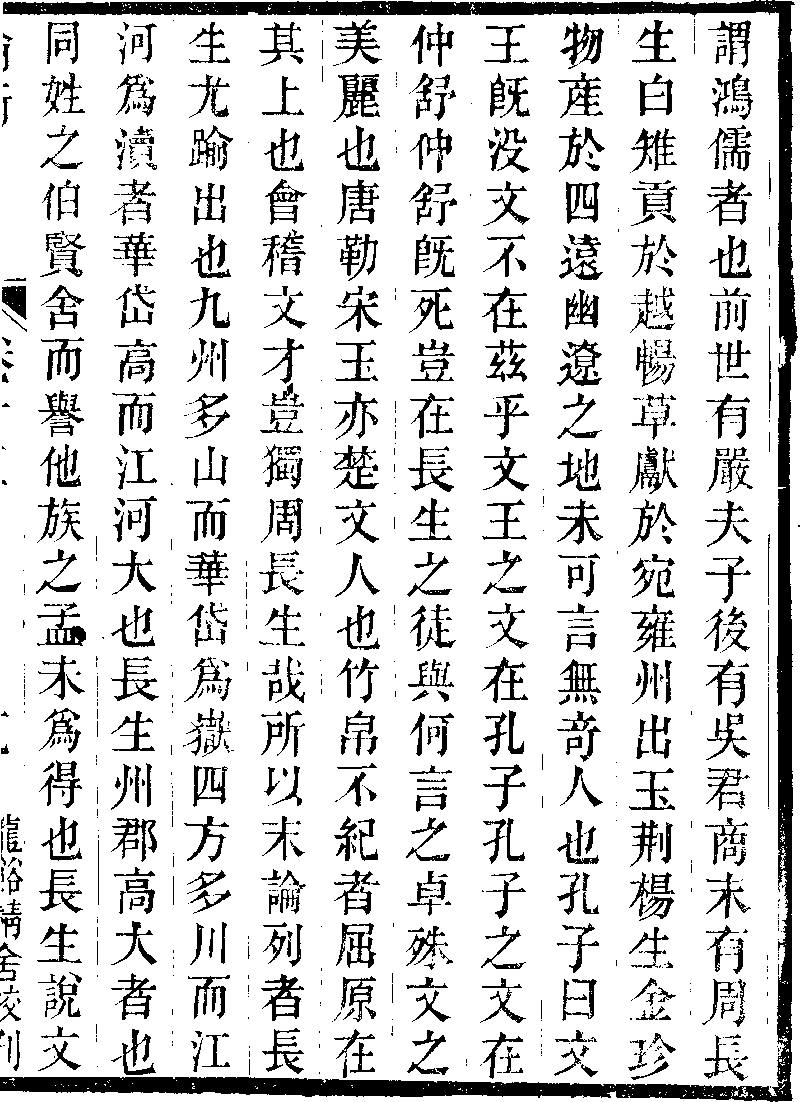 謂鴻儒者也前世有嚴夫子後有吳君商末有周長
生白雉貢於越暢草獻於宛雍州出玉荆楊生金珍
物產於四遠幽遼之地未可言無奇人也孔子曰文
王旣没文不在茲乎文王之文在孔子孔子之文在
仲舒仲舒旣死豈在長生之徒與何言之卓殊文之
美麗也唐勒宋玉亦楚文人也竹帛不紀者屈原在
其上也會稽文才豈獨周長生哉所以末論列者長
生尤踰出也九州多山而華岱爲嶽四方多川而江
河爲瀆者華岱高而江河大也長生州郡高大者也
同姓之伯賢舍而譽他族之孟未爲得也長生說文